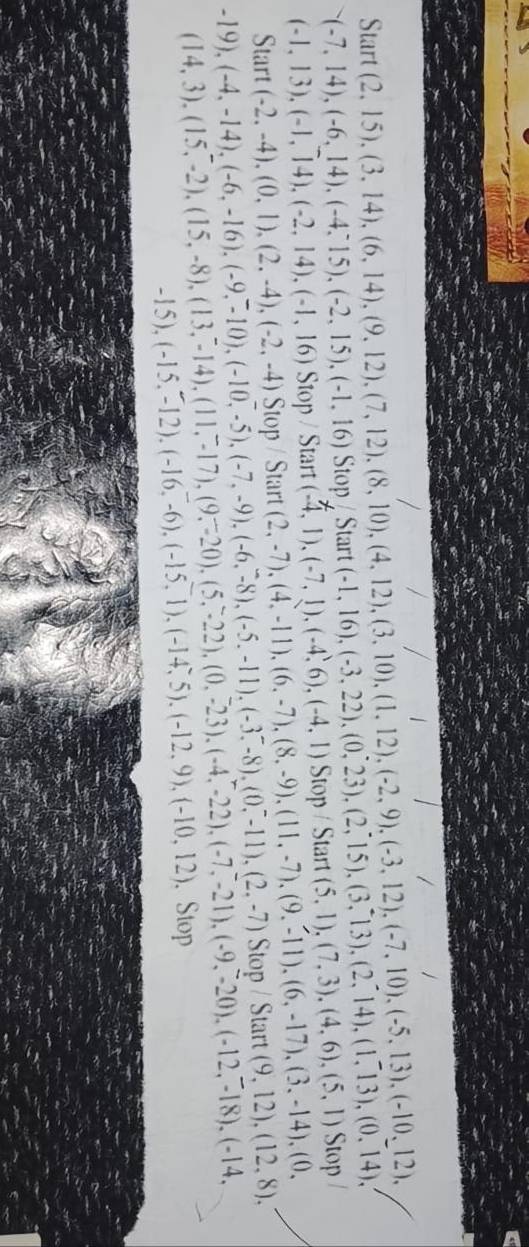 Start (2, 15), (3, 14), (6, 14), (9, 12), (7, 12), (8, 10), (4, 12), (3, 10), (1, 12), (-2, 9), (-3, 12), (-7, 10), (-5, 13), (-10, 12),
(-7, 14), (-6, 14), (-4, 15), (-2, 15), (-1, 16) Stop / Start (-1, 16), (-3, 22), (0, 23), (2, 15), (3, 13), (2, 14), (1, 13), (0, 14),
(-1, 13), (-1, 14), (-2, 14), (-1, 16) Stop / Start (-4, 1), (-7, 1), (-4, 6), (-4, 1) Stop / Start (5, 1), (7, 3), (4, 6), (5, 1) Stop /
Start (-2, -4), (0, 1), (2, -4), (-2, -4) Stop / Start (2, -7), (4, -11), (6, -7), (8, -9), (11, -7), (9, -11), (6, -17), (3, -14), (0,
-19), (-4, -14), (-6, -16), (-9, -10), (-10, -5), (-7, -9), (-6, -8), (-5, -11), (-3, -8), (0, -11), (2, -7) Stop / Start (9, 12), (12, 8),
(14, 3), (15, -2), (15, -8), (13, -14), (11, -17), (9, -20), (5, -22), (0, -23), (-4, -22), (-7, -21), (-9, -20), (-12, -18), (-14,
-15), (-15, -12), (-16, -6), (-15, 1), (-14, 5), (-12, 9), (-10, 12), Stop